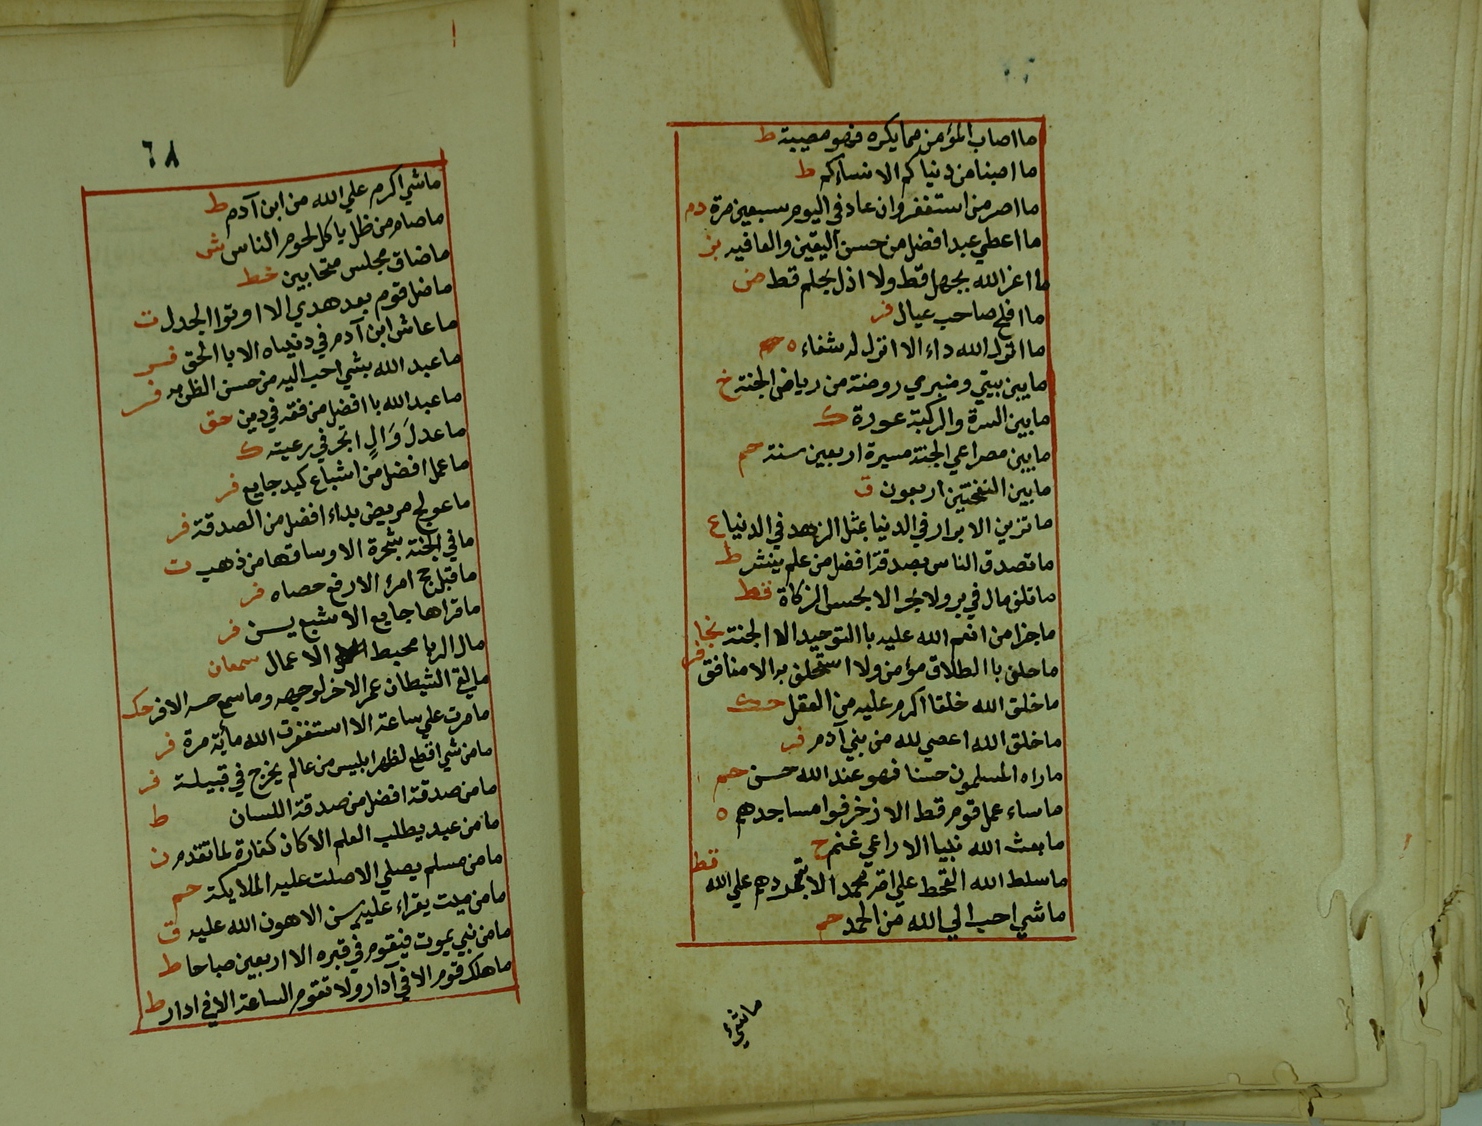 ما اصاب المؤمن مما يكره فهو مصيبة ط
ما اصبنا من دنياكم الا نساءكم ط
ما اصر من استغفر وان عاد في اليوم سبعين مرة د م
ما اعطي عبد افضل من حسن اليقين والعافيه بز
ما اعز الله بجهل قط ولا اذل بحلم قط ض
ما افلح صاحب عيال فر
ما انزل الله داء الا انزل له شفاء ه
ما بين بيتي ومنبري روضة من رياض الجنة خ
ما بين السرة والركبة عورة ك
ما بين مصراعي الجنة مسيرة اربعين سنة حم
ما بين النفختين اربعون ق
ما تزين الابرار في الدنيا بمثل الزهد في الدنيا ع
ما تصدق الناس بصدقة افضل من علم ينشر ط
ما تلف مال في بر ولا بحر الا بحبس الزكاة قط
ما جزا من انعم الله عليه با التوحيد الا الجنة نجا
ما حلف با الطلاق مؤمن ولا استحلف به الا منافق فر
ما خلق الله خلقا اكرم عليه من العقل حك
ما خلق الله اعصي لله من بني آدم فر
ما راه المسلمون حسنا فهو عند الله حسن حم
ما ساء عمل قوم قط الا زخرفوا مساجدهم ه
ما بعث الله نبيا الا راعي غنم خ
ما سلط الله القحط علي امة محمد الا بتمردهم علي الله قط
ما شي احب الي الله من الحمد حم
ما شيء
٦٨
ما شي اكرم علي الله من ابن آدم ط
ما صام من ظل ياكل لحوم الناس ش
ما ضاق مجلس متحابين خط
ما ضل قوم بعد هدي الا اوتوا الجدل ت
ما عاش ابن آدم في دنياه الا با الحق فر
ما عبد الله بشي احب اليه من حسن الظن به فر
ما عبد الله با افضل من فقه في دين حق
ما عدل وَالٍ اتجر في رعيته ك
ما عمل افضل من اشباع كبد جايع فر
ما عولج مريض بداء افضل من الصدقة فر
ما في الجنة شجرة الا وساقها من ذهب ت
ما قبل حج امرء الا رفع حصاه فر
ما قراها جايع الا شبع يسن فر
مال الربا محبط الاعمال سمعان
ما لقي الشيطان عمر الا خر لوجهه وما سمع حسه الا فر حك
ما مرت علي ساعة الا استغفرت الله مأية مرة فر
ما من شي اقطع لظهر ابليس من عالم يخرج في قبيلة فر
ما من صدقة افضل من صدقة اللسان ط
ما من عبد يطلب العلم الا كان كفارة لما تقدم ن
ما من مسلم يصلي الا صلت عليه الملايكة حم
ما من ميت يقراء عليه يسن الا هون الله عليه ق
ما من نبي يموت فيقوم في قبره الا اربعين صباحا ط
ما هلك قوم الا في آدار ولا تقوم الساعة الا في ادار ط